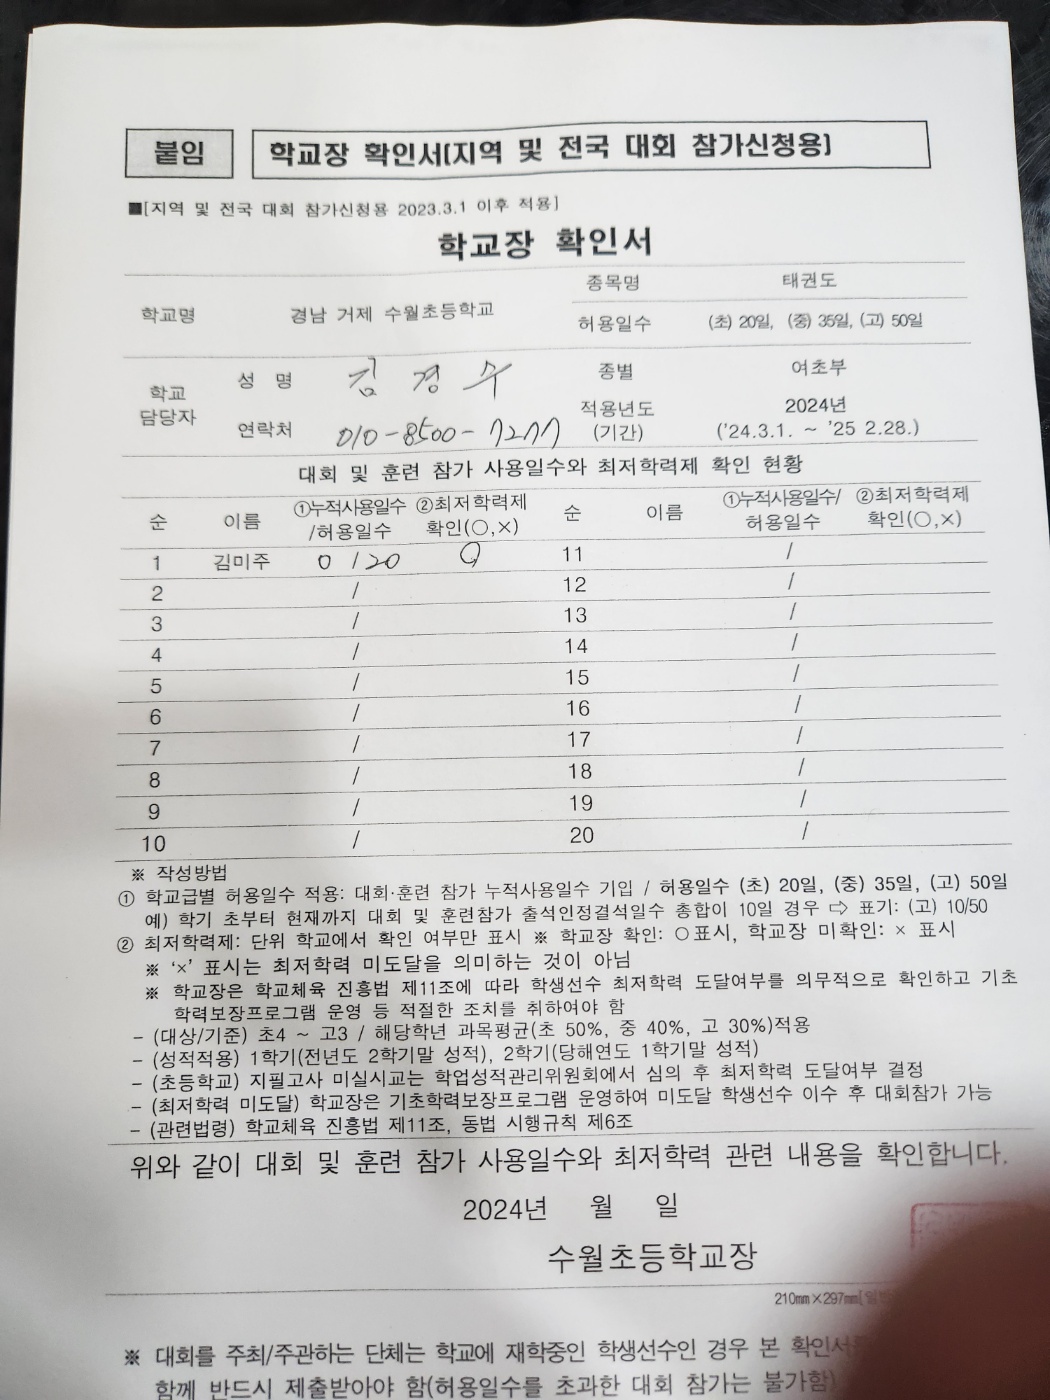 붙임 학교장 확인서(지역 및 전국 대회 참가신청용)
■[지역 및 전국 대회 참가신청용 2023.3.1 이후 적용]
학교장 확인서
학교명 경남 거제 수월초등학교 종목명 태권도
허용일수 (초) 20일, (중) 35일, (고) 50일
학교 담당자 성 명 김경수 종별 여초부
연락처 010-8500-7277 적용년도 (기간) 2024년 ('24.3.1. ~ '25 2.28.)
대회 및 훈련 참가 사용일수와 최저학력제 확인 현황
순 이름 ①누적사용일수/허용일수 ②최저학력제 확인(○,×) 순 이름 ①누적사용일수/허용일수 ②최저학력제 확인(○,×)
1 김미주 0 / 20 ○ 11 /
2 / 12 /
3 / 13 /
4 / 14 /
5 / 15 /
6 / 16 /
7 / 17 /
8 / 18 /
9 / 19 /
10 / 20 /
※ 작성방법
① 학교급별 허용일수 적용: 대회·훈련 참가 누적사용일수 기입 / 허용일수 (초) 20일, (중) 35일, (고) 50일
예) 학기 초부터 현재까지 대회 및 훈련참가 출석인정결석일수 총합이 10일 경우 ⇨ 표기: (고) 10/50
② 최저학력제: 단위 학교에서 확인 여부만 표시 ※ 학교장 확인: ○표시, 학교장 미확인: × 표시
※ '×' 표시는 최저학력 미도달을 의미하는 것이 아님
※ 학교장은 학교체육 진흥법 제11조에 따라 학생선수 최저학력 도달여부를 의무적으로 확인하고 기초
학력보장프로그램 운영 등 적절한 조치를 취하여야 함
- (대상/기준) 초4 ~ 고3 / 해당학년 과목평균(초 50%, 중 40%, 고 30%)적용
- (성적적용) 1학기(전년도 2학기말 성적), 2학기(당해연도 1학기말 성적)
- (초등학교) 지필고사 미실시교는 학업성적관리위원회에서 심의 후 최저학력 도달여부 결정
- (최저학력 미도달) 학교장은 기초학력보장프로그램 운영하여 미도달 학생선수 이수 후 대회참가 가능
- (관련법령) 학교체육 진흥법 제11조, 동법 시행규칙 제6조
위와 같이 대회 및 훈련 참가 사용일수와 최저학력 관련 내용을 확인합니다.
2024년 월 일
수월초등학교장
210mm×297mm[일반
※ 대회를 주최/주관하는 단체는 학교에 재학중인 학생선수인 경우 본 확인서
함께 반드시 제출받아야 함(허용일수를 초과한 대회 참가는 불가함)